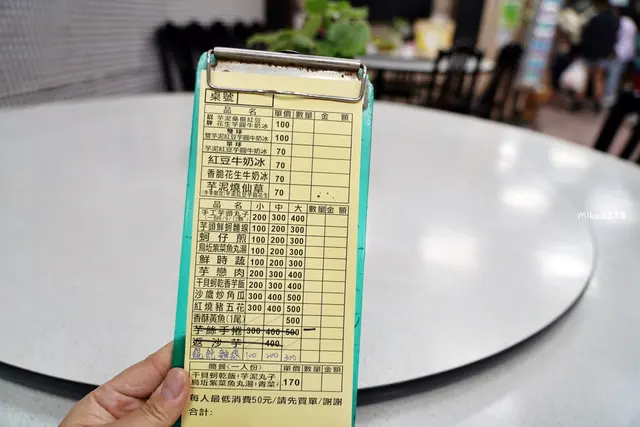 桌號
品名 單價 數量 金額
招牌 芋泥桑椹紅豆花生芋圓牛奶冰 100
雙球 雙芋泥紅豆芋圓牛奶冰 100
單球 芋泥紅豆芋圓牛奶冰 70
紅豆牛奶冰 70
香脆花生牛奶冰 70
芋泥燒仙草 70
品名 小 中 大 數量 金額
手工芋頭丸子 200 300 400
芋頭鮮蚵麵線 100 200 300
蚵仔煎 100 200 300
烏坵紫菜魚丸湯 100 200 300
鮮時蔬 100 200 300
芋戀肉 200 300 400
干貝蚵乾香芋飯 200 300 400
沙歲炒角瓜 300 400 500
紅燒豬五花 300 400 500
香酥黃魚(1尾) 500
芋絲手捲 300 400 500
返沙芋 400
100 200 300
簡餐(一人份) 單價 數量 金額
干貝蚵乾飯+芋泥丸子
烏坵紫菜魚丸湯+青菜 170
每人最低消費50元/請先買單/謝謝
合計: